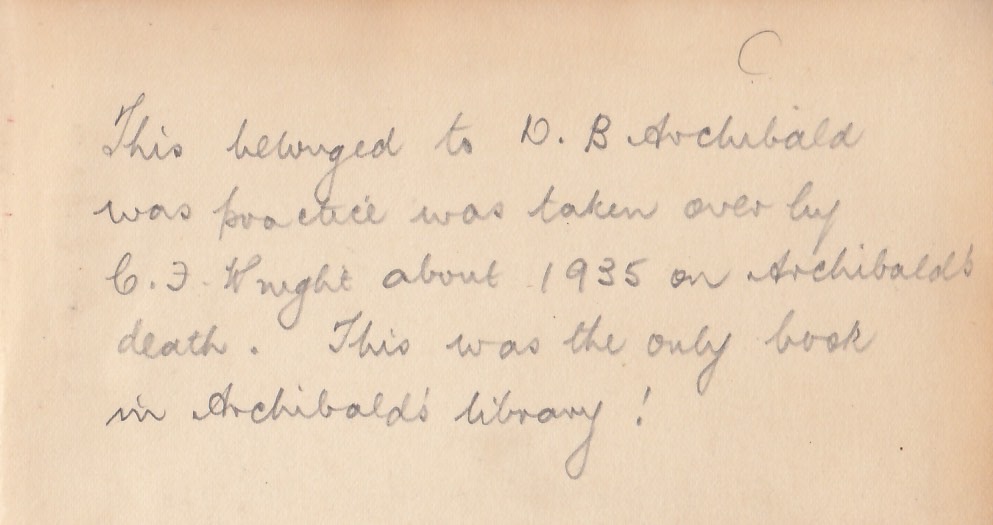 This belonged to D. B Archibald
was practice was taken over by
C. F. Wright about 1935 on Archibald's
death. This was the only book
in Archibald's library !